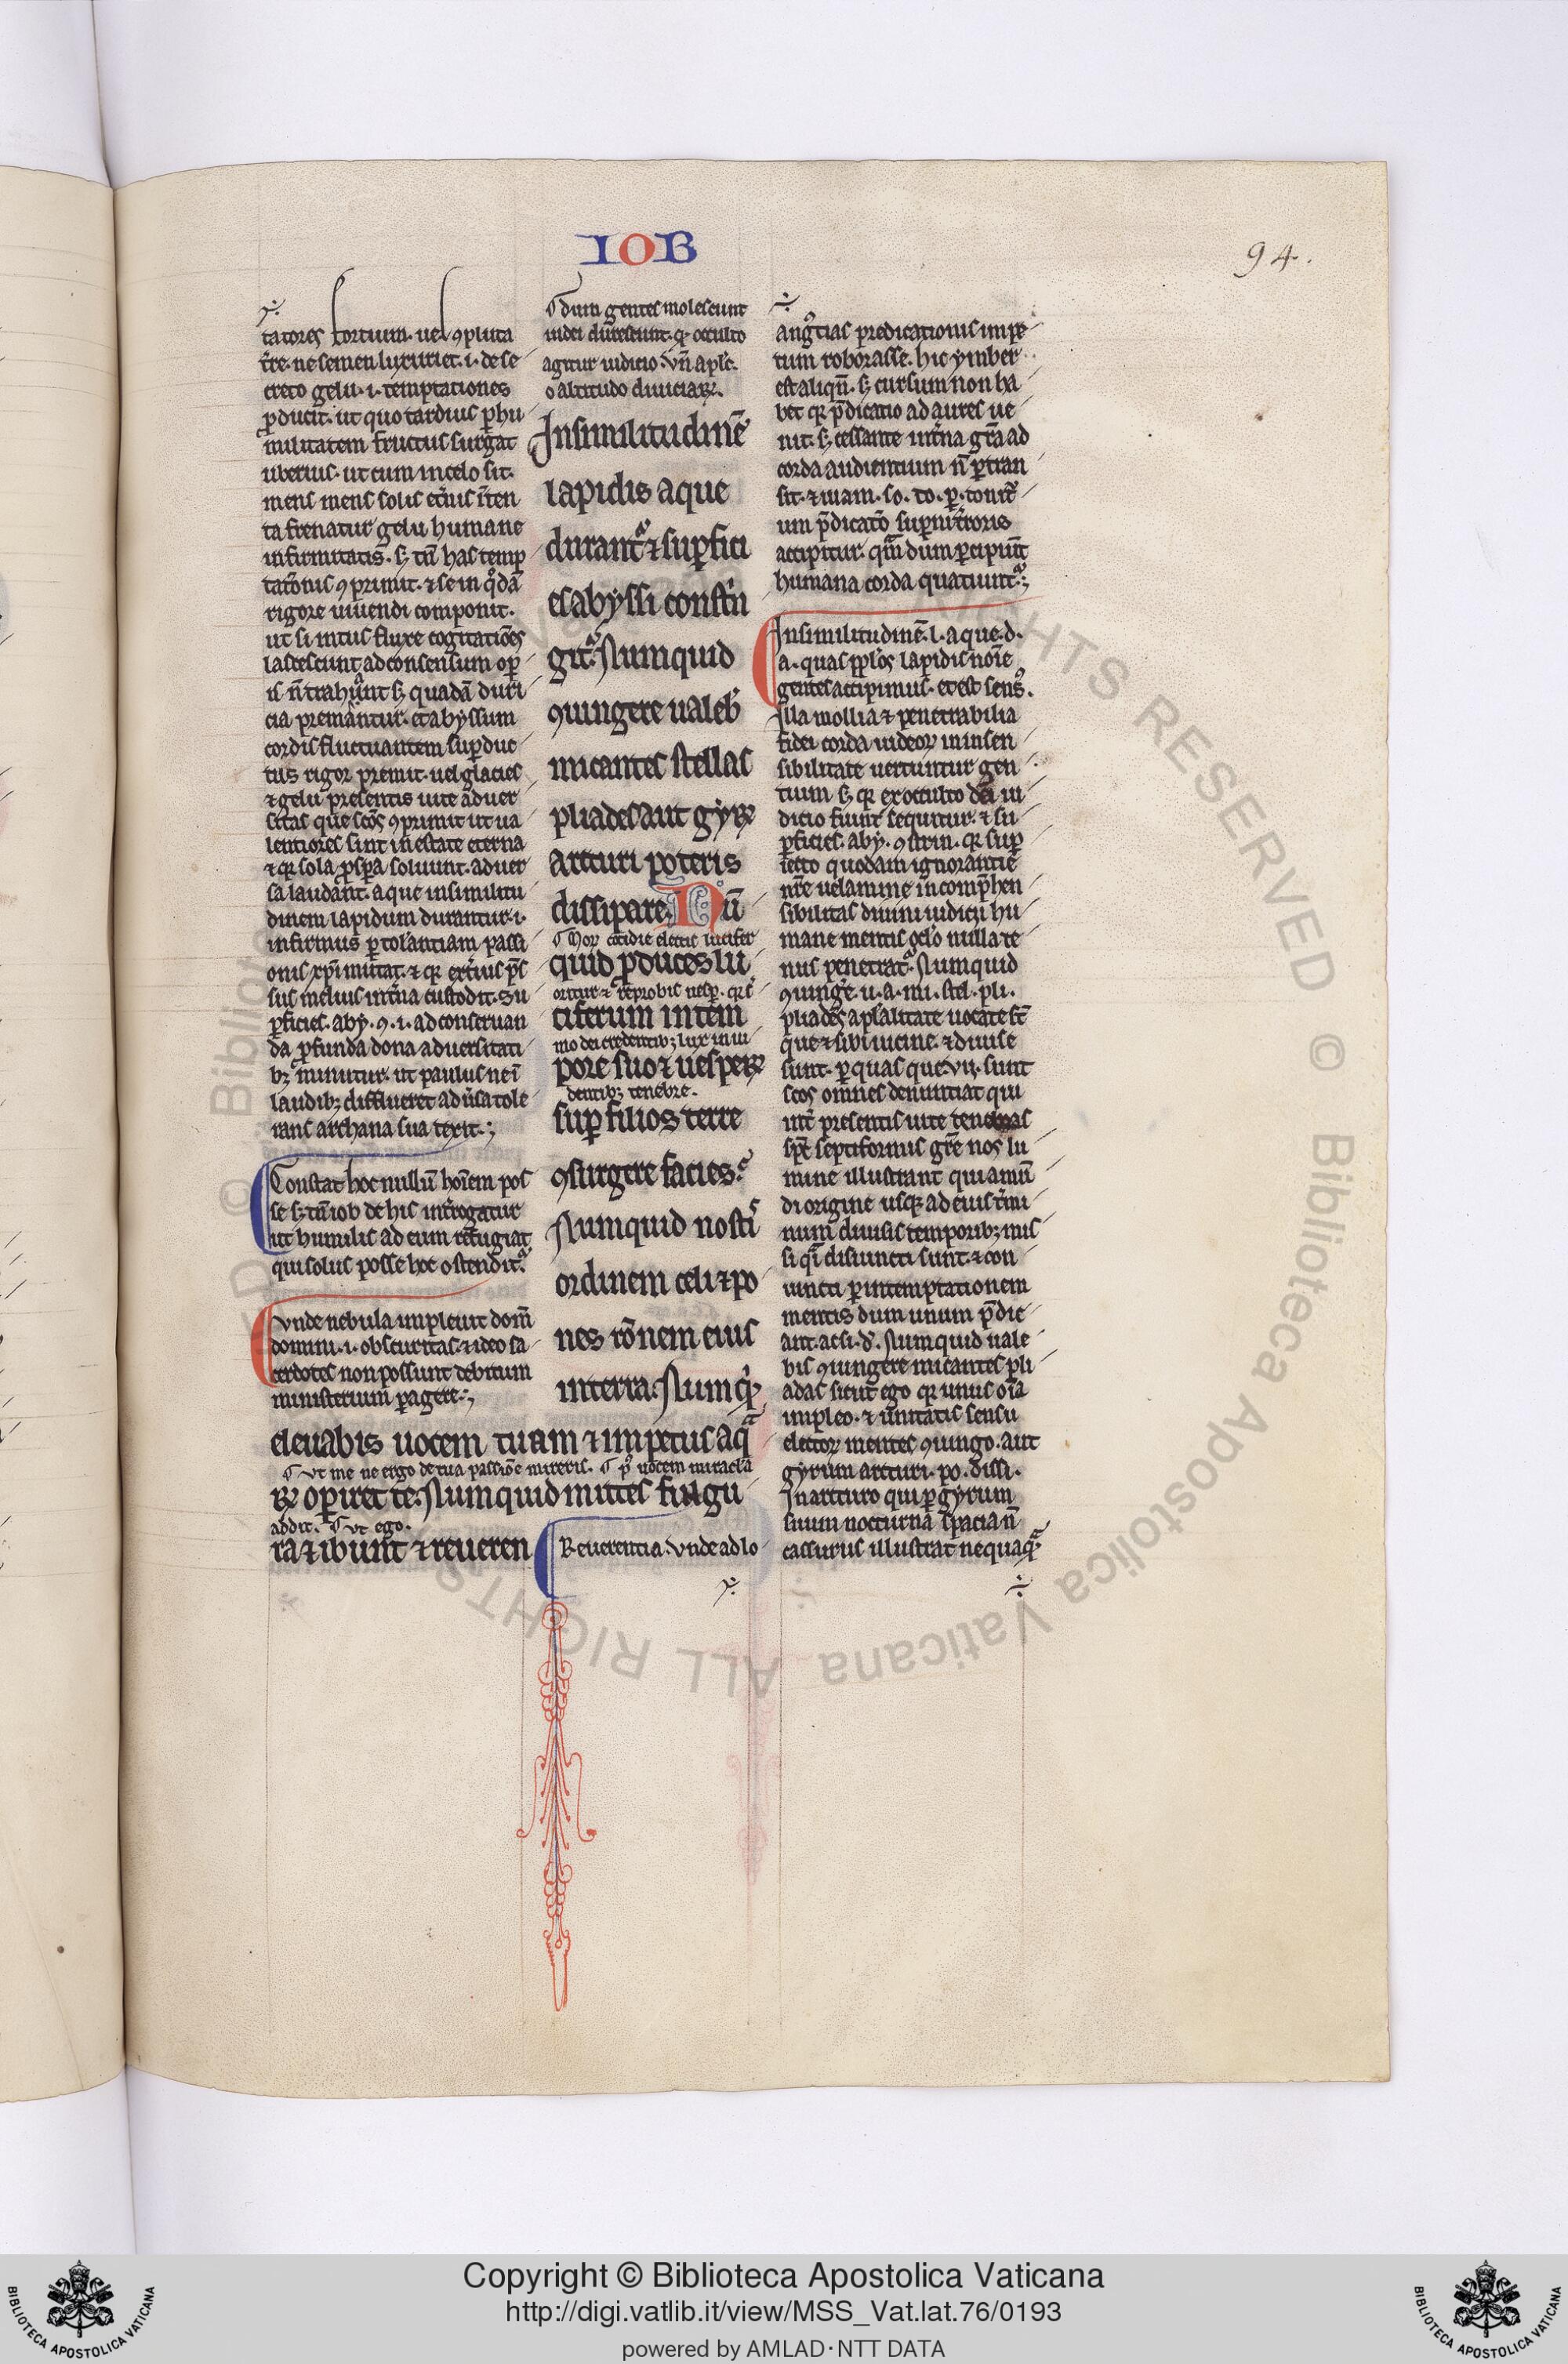 IOB
94.
tatores tortium. uel ꝯpluta
t̄re. ne semen luxuriet. i. de se
creto gelu. i. temptationes
ꝓducit. ut quo tardius ꝑ hu
militatem fructus surgat
uberius. ut cum in celo sit.
mens mens solis et̄nis īten
ta frenatur gelu humane
infirmitatis. sꝫ cū has temp
tatōnis ꝯprimit. ⁊ se in qͦdā
rigore uiuendi componit.
ut si intus fluxe cogitatiōes
lacescunt ad consensum oꝑ
is n̄ trahūnt sꝫ quadā duri
cia premantur. et abyssum
cordis fluctuantem suꝑduc
tus rigor premit. uel glacies
⁊ gelu presentis uite aduer
sitas que scōs ꝯprimit ut ua
lentiores sint in estate eterna
⁊ qꝛ sola ꝓspa soluunt. aduer
sa laudant. aque in similitu
dinem lapidum durantur. i.
infirmus ꝑ tol̓antiam passi
onis xp̄i mutat. ⁊ qꝛ ext̓ius p̄s
sus melius int̓na custodit. Su
ꝑficies. aby. ꝯ. i. ad conseruan
da ꝓfunda dona aduersitati
bꝫ minitur. ut paulus ne ī
laudibꝫ difflueret adu̓sa tole
rans archana sua texit.
Constat hoc nullū hoīem pos
se sꝫ tn̄ iob de his int̓rogatur
ut humilis ad eum refugiat
qui solus posse hoc ostendit᷑.
Vnde nebula impleuit domū
domini. i. obscuritas. ⁊ ideo sa
cerdotes non possunt debitum
ministerium ꝑagere.
dum gentes molescunt
iudei durescunt. qꝛ occulto
agitur iudicio. vn̄ apl̓c.
o altitudo diuiciaꝝ.
In similitudinē
lapidis aque
durant᷑ ⁊ suꝑfici
es abyssi constrin
git᷑. Numquid
ꝯiungere ualeb̓
micantes stellas
pliades aut gyꝝ
arcturi poteris
dissipare. Nū
Moꝝ cotidie electis lucifer
quid ꝓduces lu
oritur ⁊ reprobis uesꝑ. qꝛ ī
ciferum in tem
mo dei credentibꝫ lux in ui
pore suo ⁊ uesperꝝ
dentibꝫ tenebre.
suꝑ filios terre
ꝯsurgere facies.
Numquid nosti
ordinem celi ⁊ po
nes rōnem eius
in terra. Numqͥ
eleuabis uocem tuam ⁊ impetus aqͣ
Vt me ne ergo de tua passiōe mireris. pͦ uocem miracl̓a
ꝝ oꝑiret te. Numquid mittes fulgu
addit. Vt ego.
ra ⁊ ibunt ⁊ reueren
Reuerentia. Vnde ad lo
ang̓tias predicationis impe
tum roborasse. hic ymber
est aliqn̄. sꝫ cursum non ha
bet qꝛ p̄dicatio ad aures ue
nit. sꝫ cessante int̓na gr̄a ad
corda audientium n̄ ꝑtran
sit. ⁊ uiam. so. to. ꝑ. tonit
um p̄dicatō superni t̓roris
accipitur. quē dum ꝑcipiūt
humana corda quatiunt᷑.
In similitudinē. l. aque. d.
a. quas ppl̓os lapidis noīe
gentes accipimus. et est sensꝰ.
Illa mollia ⁊ penetrabilia
fidei corda iudeoꝝ in insen
sibilitate uertuntur gen
tium sꝫ qꝛ ex occulto dei iu
dicio fiunt sequitur. ⁊ su
ꝑficies. aby. ꝯstrin. qꝛ suꝑ
iecto quodam ignorantie
nr̄e uelamine incomp̄hen
sibilitas diuini iudicii hu
mane mentis ocl̓o nulla te
nus penetrat᷑. Numquid
ꝯiunge. u. a. mi. stel. pli.
pliades a plalitate uocate st̄
que ⁊ sibi uicine. ⁊ diuise
sunt. ꝑ quas que. vii. sunt
scōs omnes denuntiat qui
int̓ presentis uite tenebras
sp̄c septiformis gr̄e nos lu
mine illustrant qui a mū
di origine usqꝫ ad eius t̓mi
num diuisis temporibꝫ mis
si qͣi disiuncti sunt. ⁊ con
iuncti ꝑ intemptationem
mentis dum unum p̄dic
ant. ac si. d̓. Numquid uale
bis ꝯiungere micantes pli
adas sicut ego qꝛ unus oīa
impleo. ⁊ unitatis sensu
electoꝝ mentes ꝯiungo. aut
gyrum arcturi. po. dissi.
In arcturo qui ꝑ gyrum
suum nocturna spacia n̄
cassurus illustrat nequaqͣ
Copyright © Biblioteca Apostolica Vaticana
http://digi.vatlib.it/view/MSS_Vat.lat.76/0193
powered by AMLAD·NTT DATA
BIBLIOTECA APOSTOLICA VATICANA
BIBLIOTECA APOSTOLICA VATICANA
© Biblioteca Apostolica Vaticana ALL RIGHTS RESERVED